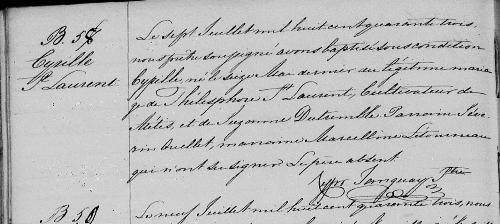 B. 57
Cyrille
St. Laurent
Le sept Juillet mil huit cent quarante trois,
nous prêtre soussigné avons baptisé sous condition
Cyrille, né le seize Mai dernier du légitime maria
ge de Thélesphore St. Laurent, Cultivateur de
Métis, et de Suzanne Dutremble Parrain Séve
rin Ouellet, marraine Marcelline Létourneau
qui n'ont su signer Le père absent
Cypr. Tanguay Ptre
B. 58
Le neuf Juillet mil huit cent quarante trois, nous